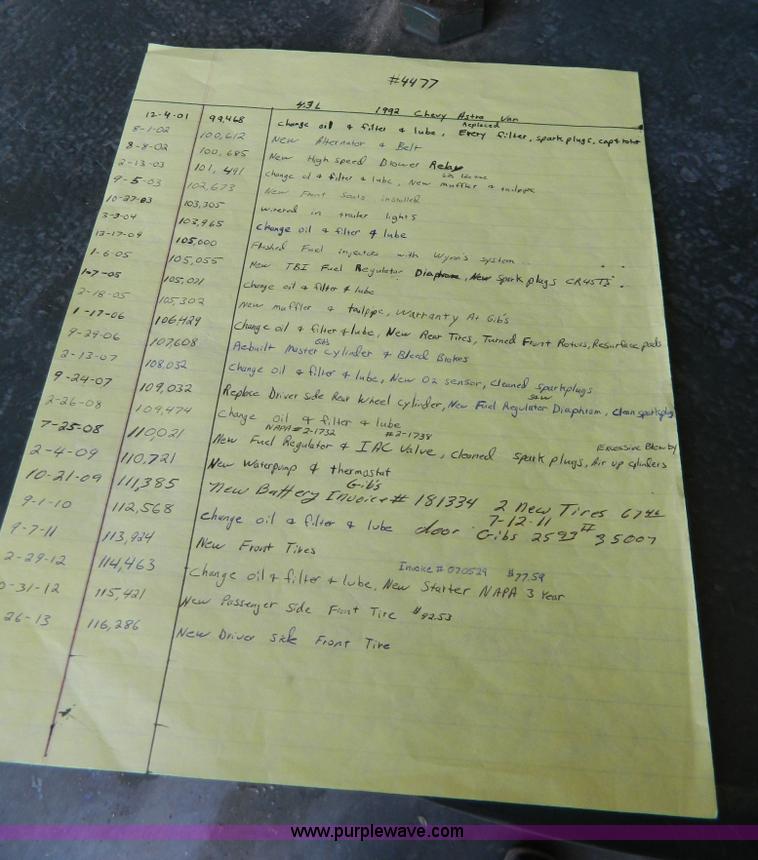 #4477
4.3L 1992 Chevy Astro Van
12-4-01 99,468 Change oil & filter & lube, Replaced Every filter, sparkplugs, cap & rotor
8-1-02 100,612 New Alternator & Belt
8-8-02 100,685 New High speed Blower Relay
2-13-03 101,491 Change oil & filter & lube, New muffler & tailppe
9-5-03 102,673 New Front Seats installed
10-27-03 103,305 Wirered in trailer lights
3-3-04 103,965 Change oil & filter & lube
12-17-04 105,000 Flushed Fuel injectors with Wynn's system
1-6-05 105,055 New TBI Fuel Regulator Diaphram, New spark plugs CR45TS
1-7-05 105,071 Change oil & filter & lube
2-18-05 105,302 New muffler & tailppe, Warranty At Gib's
1-17-06 106,429 Change oil & filter & lube, New Rear Tires, Turned Front Rotors, Resurface pads
9-29-06 107,608 Rebuilt Master Cylinder & Bleed Brakes
Gibs
2-13-07 108,032 Change oil & filter & lube, New O2 sensor, Cleaned sparkplugs
9-24-07 109,032 Replace Driver side Rear Wheel Cylinder, New Fuel Regulator Diaphram, Clean sparkplugs
2-26-08 109,474 Change oil & filter & lube
NAPA #2-1732 #2-1738 Excessive Blow by
7-25-08 110,021 New Fuel Regulator & IAC Valve, Cleaned spark plugs, Air up cylinders
2-4-09 110,721 New Waterpump & thermostat
Gib's
10-21-09 111,385 New Battery Invoice # 181334 2 New Tires 67 46
7-12-11
9-1-10 112,568 Change oil & filter & lube door Gibs 2593 # 35007
9-7-11 113,924 New Front Tires
Invoice # 070529 $77.59
2-29-12 114,463 Change oil & filter & lube, New Starter NAPA 3 Year
0-31-12 115,421 New Passenger Side Front Tire $92.53
26-13 116,286 New Driver side Front Tire
www.purplewave.com